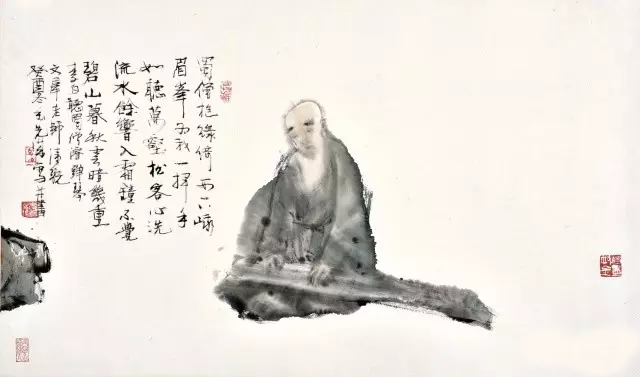 蜀僧抱綠綺西下峨
眉峯為我一揮手
如聽萬壑松客心洗
流水餘響入霜鐘不覺
碧山暮秋雲暗幾重
李白聽蜀僧濬彈琴
老師清
癸酉冬